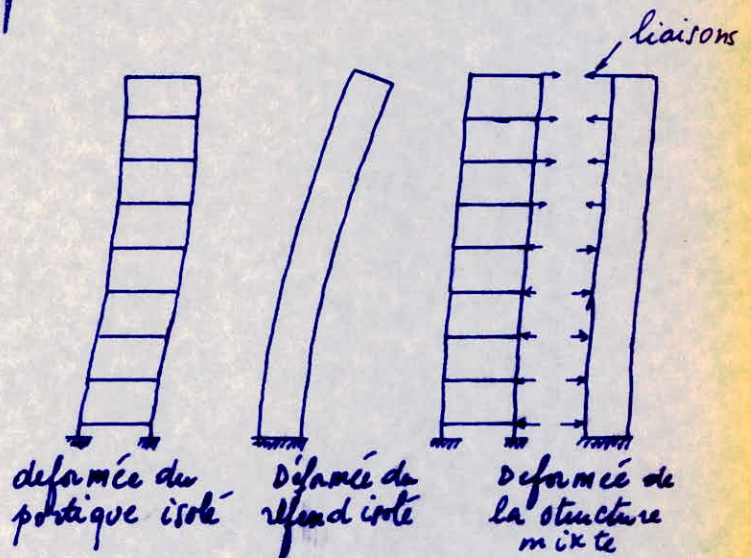 liaisons
deformée du
portique isolé
Déformée du
refend isolé
Deformée de
la structure
mixte